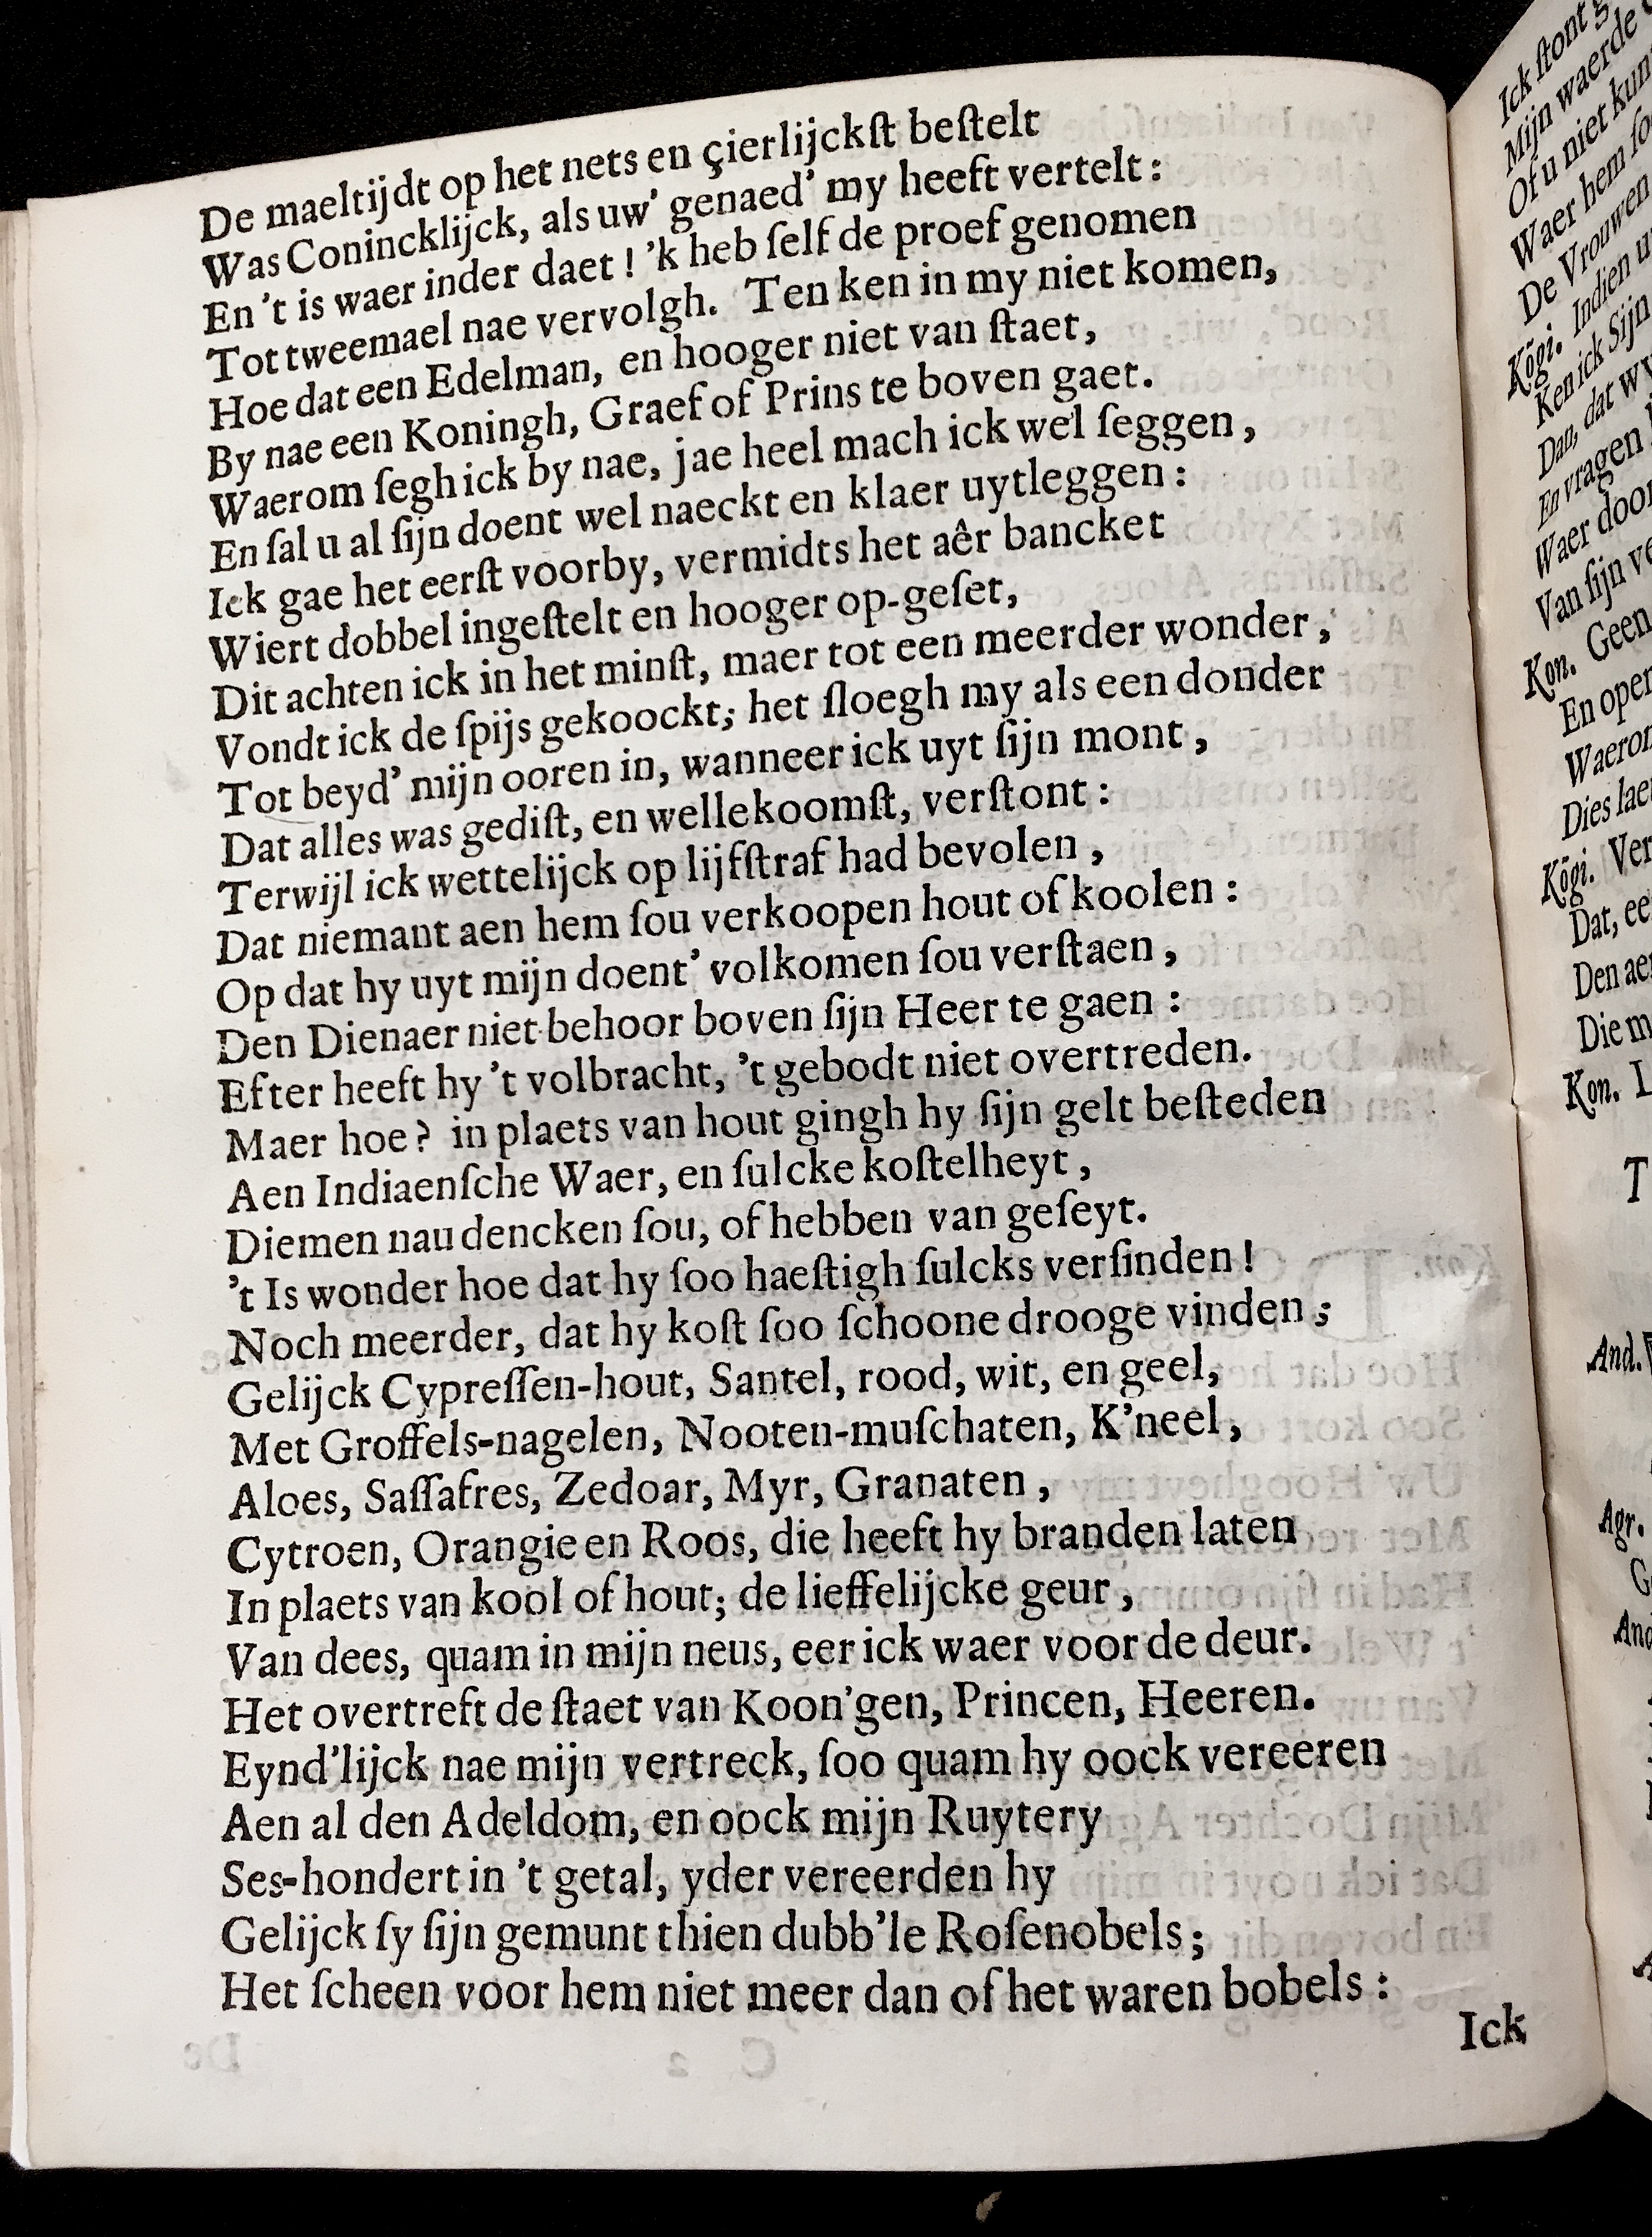 De maeltijdt op het nets en çierlijckſt beſtelt
Was Conincklijck, als uw' genaed' my heeft vertelt:
En 't is waer inder daet! 'k heb ſelf de proef genomen
Tot tweemael nae vervolgh. Ten ken in my niet komen,
Hoe dat een Edelman, en hooger niet van ſtaet,
By nae een Koningh, Graef of Prins te boven gaet.
Waerom ſegh ick by nae, jae heel mach ick wel ſeggen,
En ſal u al ſijn doent wel naeckt en klaer uytleggen:
Ick gae het eerſt voorby, vermidts het aêr bancket
Wiert dobbel ingeſtelt en hooger op-geſet,
Dit achten ick in het minſt, maer tot een meerder wonder,
Vondt ick de ſpijs gekoockt; het ſloegh my als een donder
Tot beyd' mijn ooren in, wanneer ick uyt ſijn mont,
Dat alles was gediſt, en wellekoomſt, verſtont:
Terwijl ick wettelijck op lijfſtraf had bevolen,
Dat niemant aen hem ſou verkoopen hout of koolen:
Op dat hy uyt mijn doent' volkomen ſou verſtaen,
Den Dienaer niet behoor boven ſijn Heer te gaen:
Efter heeft hy 't volbracht, 't gebodt niet overtreden.
Maer hoe? in plaets van hout gingh hy ſijn gelt beſteden
Aen Indiaenſche Waer, en ſulcke koſtelheyt,
Diemen nau dencken ſou, of hebben van geſeyt.
't Is wonder hoe dat hy ſoo haeſtigh ſulcks verſinden!
Noch meerder, dat hy koſt ſoo ſchoone drooge vinden;
Gelijck Cypreſſen-hout, Santel, rood, wit, en geel,
Met Groffels-nagelen, Nooten-muſchaten, K'neel,
Aloes, Saſſafres, Zedoar, Myr, Granaten,
Cytroen, Orangie en Roos, die heeft hy branden laten
In plaets van kool of hout; de lieffelijcke geur,
Van dees, quam in mijn neus, eer ick waer voor de deur.
Het overtreft de ſtaet van Koon'gen, Princen, Heeren.
Eynd'lijck nae mijn vertreck, ſoo quam hy oock vereeren
Aen al den Adeldom, en oock mijn Ruytery
Ses-hondert in 't getal, yder vereerden hy
Gelijck ſy ſijn gemunt thien dubb'le Roſenobels;
Het ſcheen voor hem niet meer dan of het waren bobels:
Ick
Ick ſtont
Mijn waerde
Of u niet
Waer hem
De Vrouwen
Kōgi. Indien
Ken ick Sijn
Dan, dat
En vragen
Waer door
Van ſijn
Kon. Geen
En open
Dies
Kōgi.
Dat,
Den
Die
Kon.
And.
Agr.